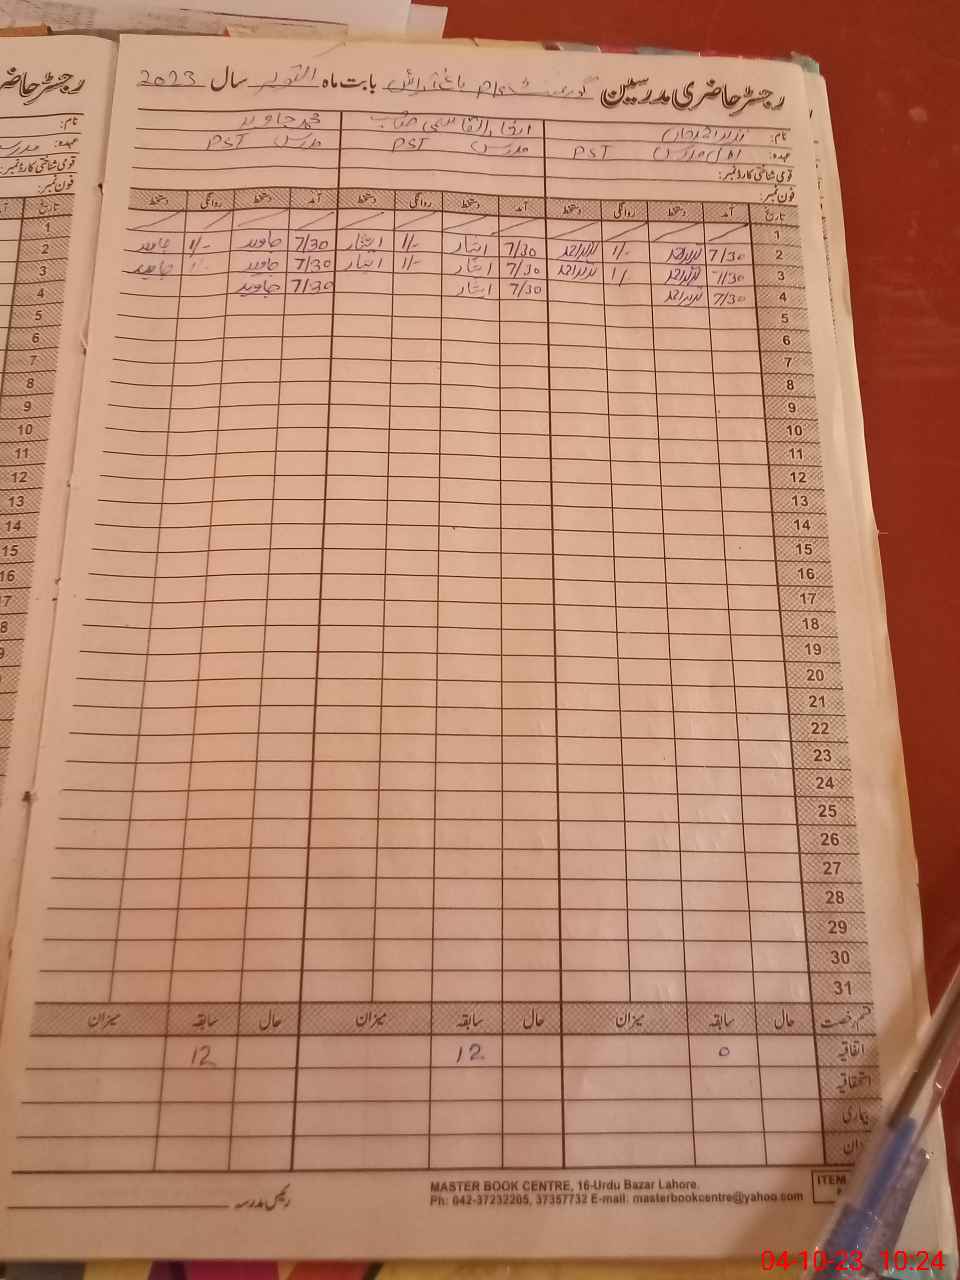 رجسٹر حاضری مدرسین گورنمنٹ بابت ماہ اکتوبر سال 2023
نام:
محمد جاوید
عہدہ: اول مدرس PST
مدرس PST
مدرس PST
قومی شناختی کارڈ نمبر:
فون نمبر:
تاریخ آمد دستخط روانگی دستخط آمد دستخط روانگی دستخط آمد دستخط روانگی دستخط
1
2 7/30 1/- 7/30 ایثار 1/- ایثار 7/30 جاوید 1/- جاوید
3 7/30 1/ 7/30 ایثار 1/- ایثار 7/30 جاوید جاوید
4 7/30 7/30 ایثار 7/30 جاوید
5
6
7
8
9
10
11
12
13
14
15
16
17
18
19
20
21
22
23
24
25
26
27
28
29
30
31
قسم رخصت حال سابقہ میزان حال سابقہ میزان حال سابقہ میزان
اتفاقیہ 0 12 12
استحقاقیہ
بیماری
رئیس مدرسہ
MASTER BOOK CENTRE, 16-Urdu Bazar Lahore.
Ph: 042-37232205, 37357732 E-mail: masterbookcentre@yahoo.com
ITEM
04-10-23 10:24